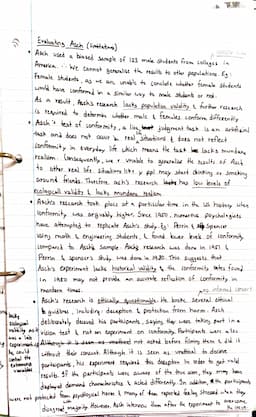 Evaluating Asch (limitations)
Asch used a biased sample of 123 male students from colleges in
America. ∴ We cannot generalise the results to other populations. Eg:
female students, as we are unable to conclude whether female students
would have conformed in a similar way to male students or not.
As a result, Asch's research lacks population validity & further research
is required to determine whether males & females conform differently
Asch's test of conformity, a line judgement task is an artificial
task and does not occur in real situations & does not reflect
conformity in everyday life which means the task lacks mundane
realism. Consequently, we r unable to generalise the results of Asch
to other real life situations like y ppl may start drinking or smoking
around friends. Therefore, asch's research has low levels of
ecological validity & lacks mundane realism.
Asch's research took place at a particular time in the US history when
conformity was arguably higher. Since 1950, numerous psychologists
have attempted to replicate Asch's study. Eg: Perrin & Spencer
using math & engineering students, & found lower levels of conformity
compared to Asch's sample. Asch's research was done in 1951 &
Perrin & Spencer's study was done in 1980. This suggests that
Asch's experiment lacks historical validity & the conformity rates found
in 1950 may not provide an accurate reflection of conformity in
modern times.
no informed consent
Asch's research is ethically questionable. He broke several ethical
guidelines, including: deception & protection from harm. Asch
deliberately deceived his participants, saying they were taking part in a
vision test & not an experiment on conformity. Participants were also
not asked before filming them & did it
without their consent. Although it is seen as unethical to deceive
participants, his experiment required this deception in order to get valid
results. If the participants were aware of the true aim, they may have
displayed demand characteristics & acted differently. In addition, Asch's participants
were not protected from psychological harm & many of them reported feeling stressed when they
disagreed majority. However, Asch interviewed them after the experiment to overcome
lacks
validity